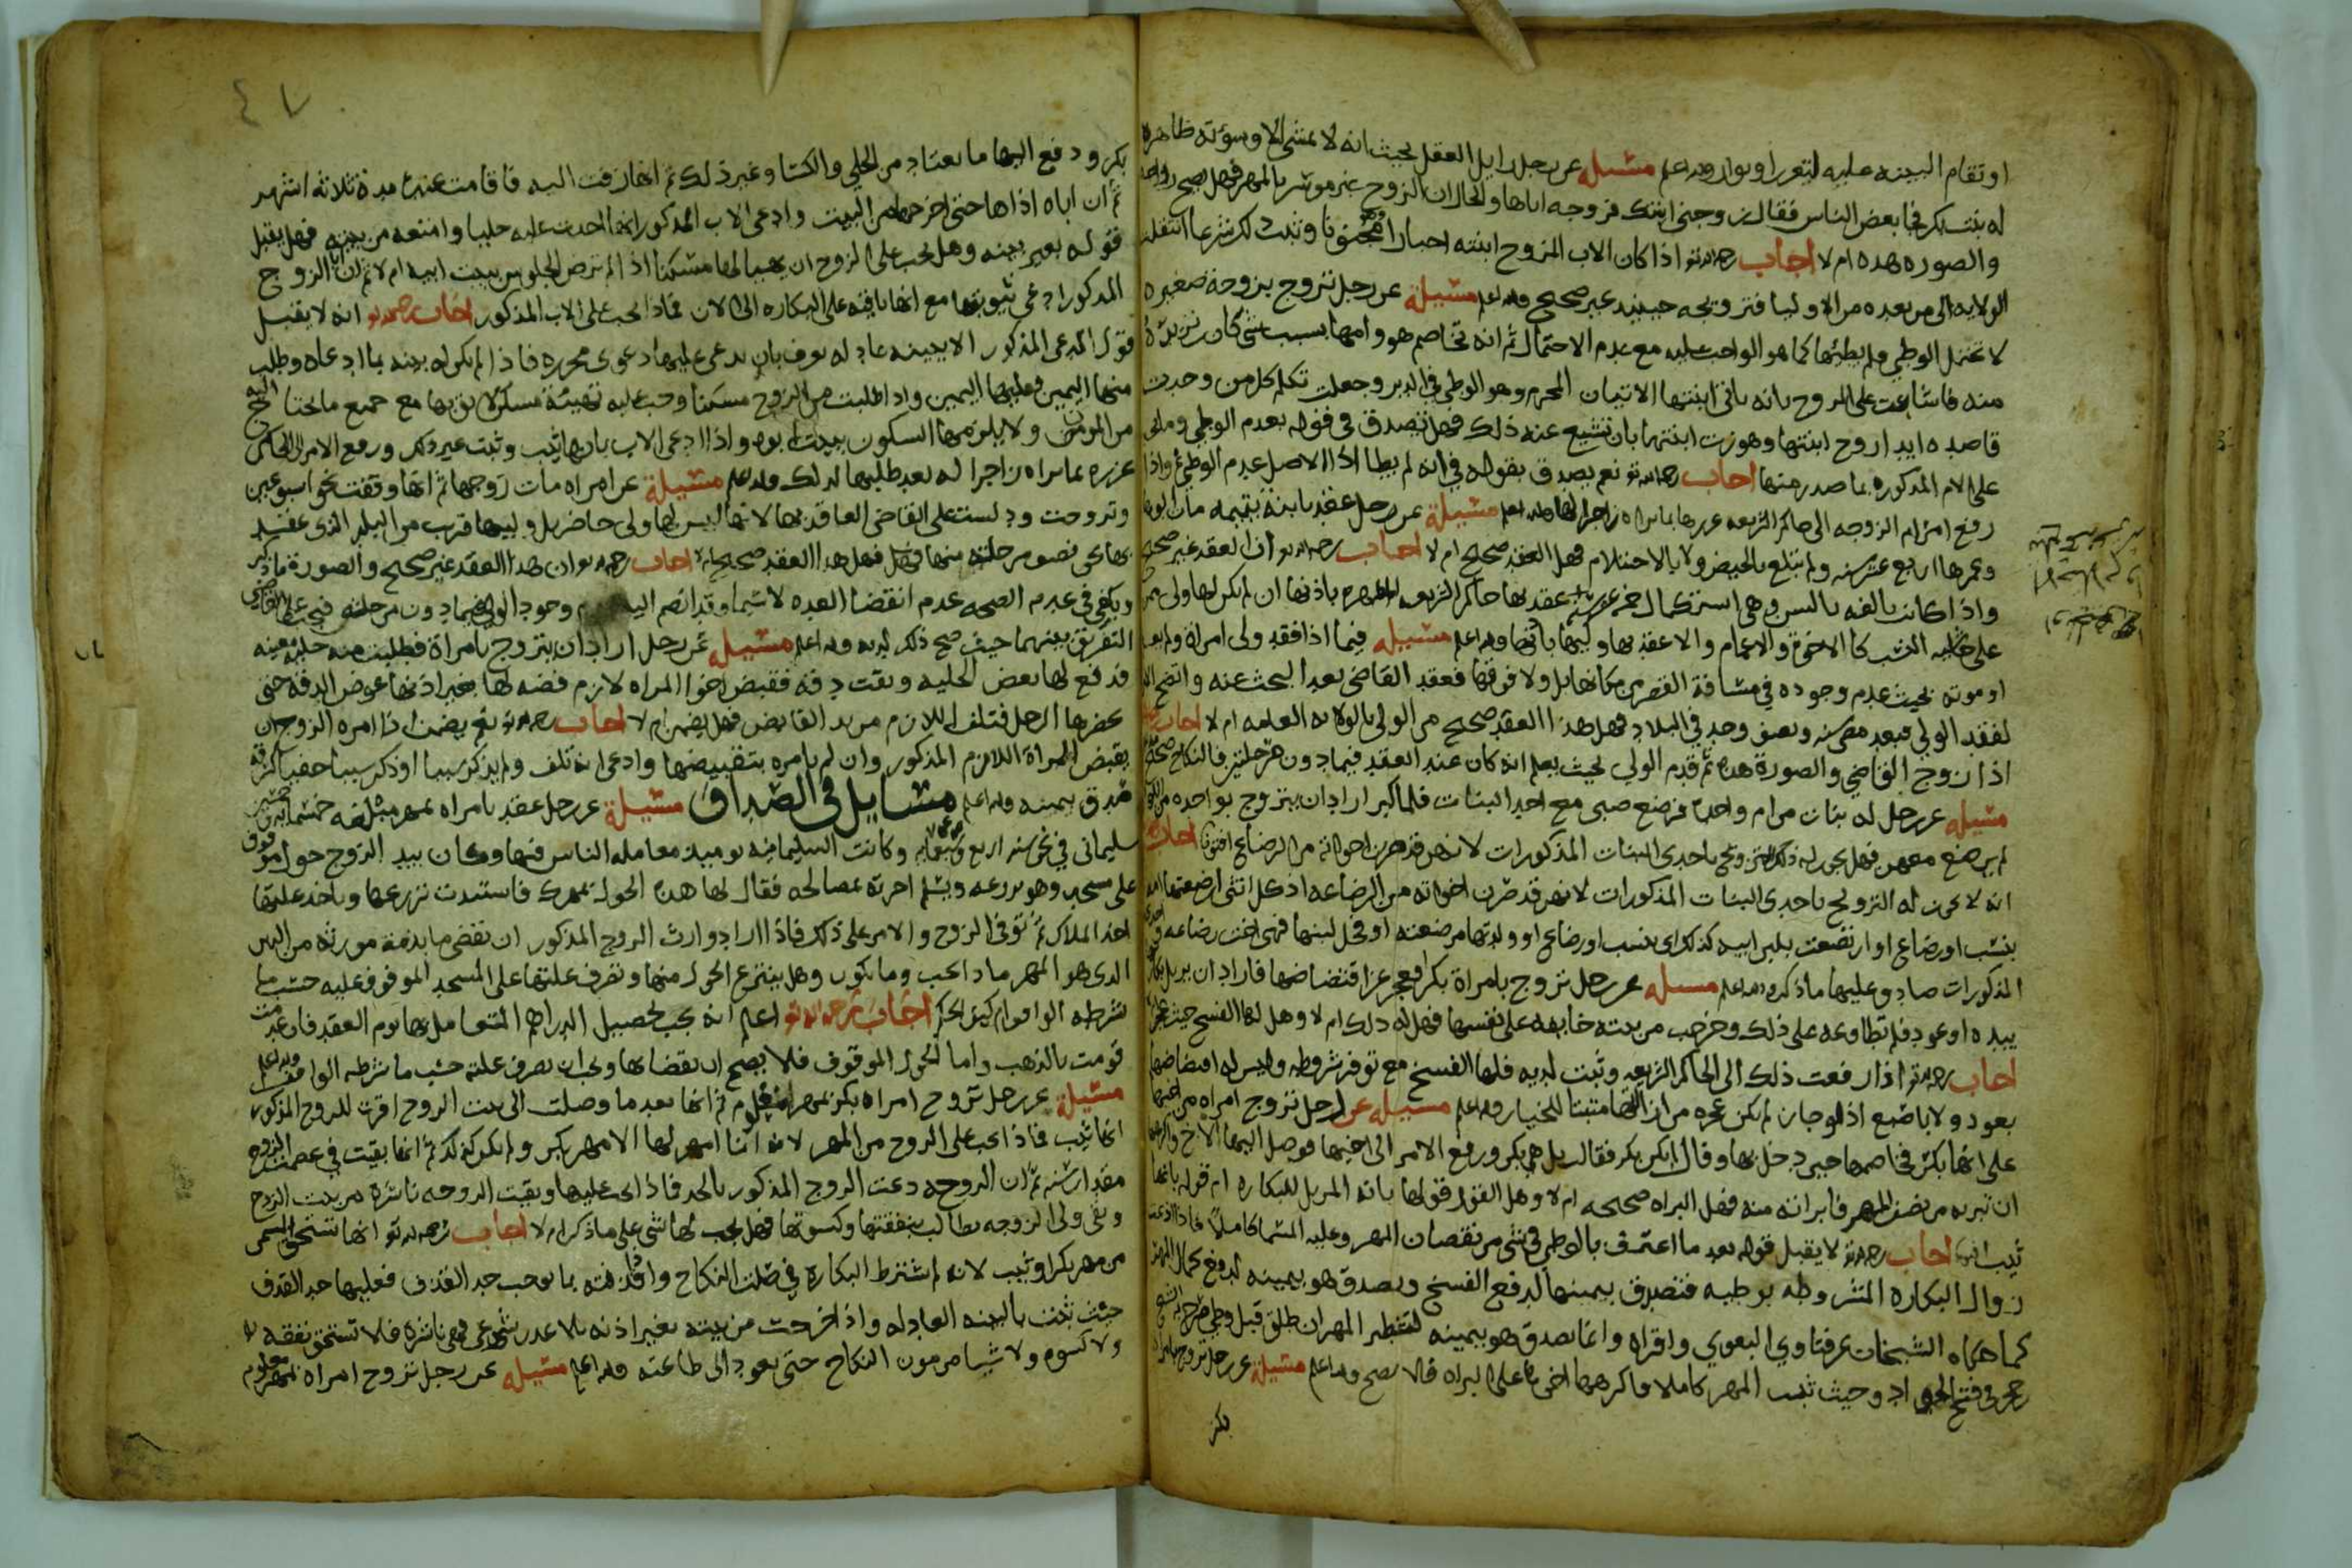 او تقام البينه عليه ليتعزر او يوادب والله اعلم مسيله عن رجل زايل العقل بحيث انه لا يمشي الا وسؤته ظاهره
له بنت بكر فجا بعض الناس فقال زوجني ابنتك فزوجه اياها والحال ان الزوج غير موسر بالمهر فهل يصح زواجه
والصوره هذه ام لا اجاب رحمه الله تعالى اذا كان الاب المزوج ابنته اجبارا مجنونا وثبت ذلك شرعا انتقلت
الولايه الى من بعده من الاوليا فتزويجه حينيذ غير صحيح والله اعلم مسيلة عن رجل تزوج بزوجة صغيره
لا تحتمل الوطي ولم يطئها كما هو الواجب عليه مع عدم الاحتمال ثم انه تخاصم هو وامها بسبب شي كان
منه فاشاعت على الزوج بانه ياتي ابنتها الاتيان المحرم وهو الوطي في الدبر وجعلت تكلم كل من وجدت
قاصده ايذا زوج ابنتها وهوزت ابنتها بان تشيع عنه ذلك فهل تصدق في قوله بعدم الوطي وماذا
على الام المذكوره بما صدر منها اجاب رحمه الله تعالى نعم يصدق بقوله في انه لم يطا اذ الاصل عدم الوطي واذا
رفع امر ام الزوجه الى حاكم الشريعه عزرها بما يراه زاجرا لها والله اعلم مسيلة عن رجل عقد بابنة يتيمه مات ابوها
وعمرها اربع عشر سنه ولم تبلغ بالحيض ولا بالاحتلام فهل العقد صحيح ام لا اجاب رحمه الله تعالى ان العقد غير صحيح
واذا كانت بالغه بالسن وهي استكمال خمسة عشر سنة عقد بها حاكم الشريعه باذنها ان لم يكن لها ولي
على حاشيه النسب كالاخوة والاعمام والا عقد بها وليها باذنها والله اعلم مسيله فيما اذا فقد ولي امراة ولم يعلم
او موته بحيث عدم وجوده في مسافة القصر من مكانها بل ولا فوقها فعقد القاضي بعد البحث عنه واتضح
لفقد الولي فبعد مضي سنه ونصف وجد في البلاد فهل هذا العقد صحيح من الولي بالولايه العامه ام لا اجاب
اذا زوج القاضي والصورة هذه ثم قدم الولي بحيث يعلم انه كان عند العقد فيما دون مرحلتين فالنكاح
مسيله عن رجل له بنات من ام واحدة فرضع صبي مع احد البنات فلما كبر اراد ان يتزوج بواحده من
لم يرضع معهن فهل يجوز له ذلك التزويج باحدى البنات المذكورات لانهن قد صرن اخواته من الرضاع افتونا اجاب
انه لا يجوز له التزويج باحدى البنات المذكورات لانهن قد صرن اخواته من الرضاعه اذ كل انثى ارضعتها امه
بنسب او رضاع او ارتضعت بلبن ابيه كذلك اي بنسب او رضاع او ولدتها مرضعته او فحل لبنها فهي اخت رضاعه
المذكورات صادق عليها ما ذكر والله اعلم مسيله عن رجل تزوج بامراة بكرا فعجز عن اقتضاضها فاراد ان يزيل
بيده او عود فلم تطاوعه على ذلك وخرجت من بيته خايفه على نفسها فهل له ذلك ام لا وهل لها الفسخ حيث
اجاب رحمه الله تعالى اذا رفعت ذلك الى الحاكم الشريعه وثبت لديه فلها الفسخ مع توفر شروطه وليس له افتضاضها
بعود ولا باصبع اذ لو جاز لم يكن عجزه من ازالتها مثبتا للخيار والله اعلم مسيله عن رجل تزوج امراه من اخيها
على انها بكر فخاصمها حين دخل بها وقال لم تكن بكر فقال بل هي بكر ورفع الامر الى اخيها فوصل اليها الاخ واكرهها
ان تبريه من نصف المهر فابراته منه فهل البراه صحيحه ام لا وهل القول قولها بانه المزيل للبكاره ام قوله بانها
ثيب اجاب رحمه الله تعالى لا يقبل قوله بعد ما اعترف بالوطي في شي من نقصان المهر وعليه المسما كاملا فاذا ادعت
زوال البكاره المشروطه بوطيه فتصدق بيمينها لدفع الفسخ ويصدق هو بيمينه لدفع كمال المهر
كما حكاه الشيخان عن فتاوي البغوي واقراه وانما يصدق هو بيمينه لتشطير المهر ان طلق قبل وطي
حجر في فتح الجواد وحيث ثبت المهر كاملا فاكرهها اخيها على البراه فلا يصح والله اعلم مسيلة عن رجل تزوج بامراة
بكر
٤٧
بكر ودفع اليها ما يعتاد من الحلي والكسا وغير ذلك ثم انها زفت اليه فاقامت عنده مدة ثلاثه اشهر
ثم ان اباه اذاها حتى اخرجها من البيت وادعى الاب المذكور انها احدثت عليه حليا وامتعه من بيته فهل يقبل
قوله بغير بينه وهل يجب على الزوج ان يهيا لها مسكنا اذ لم ترض الجلوس ببيت ابيه ام لا ثم ان ابا الزوج
المذكور ادعى ثيوبتها مع انها باقية على البكاره الى الان فماذا يجب على الاب المذكور اجاب رحمه الله تعالى انه لا يقبل
قول المدعي المذكور الا ببينه عادله بعرف بان يدعي عليها دعوى محرره فاذا لم يكن له بينه بما ادعاه وطلب
منها اليمين فعليها اليمين واذا طلبت من الزوج مسكنا وجب عليه تهيئة مسكن لايق بها مع جميع ما تحتاج اليه
من المؤن ولا يلزمها السكون ببيت ابوه واذا ادعى الاب بانها ثيب وثبت غير ذلك ورفع الامر الى الحاكم
عزره بما يراه زاجرا له بعد طلبها لذلك والله اعلم مسيلة عن امراه مات زوجها ثم انها وقفت نحو اسبوعين
وتزوجت ودلست على القاضي العاقد بها لانها ليس لها ولي حاضر بل وليها قرب من البلد الذي عقد
بها نحو نصف مرحلة منها فهل هذا العقد صحيح ام لا اجاب رحمه الله تعالى ان هذا العقد غير صحيح والصورة ما ذكر
ويكفي في عدم الصحه عدم انقضا العده لا سيما وقد انضم اليه وجود الولي فيما دون مرحلتين فيجب على القاضي
التفريق بينهما حيث صح ذلك لديه والله اعلم مسيله عن رجل اراد ان يتزوج بامراة فطلبت منه حليه معينه
فدفع لها بعض الحليه وبقت دقه فقبض اخو المراه لازم فضه لها بغير اذنها عوض الدقه حتى
يحضرها الرجل فتلف اللازم من يد القابض فهل يضمن ام لا اجاب رحمه الله تعالى نعم يضمن اذا امره الزوج ان
يقبض المراة اللازم المذكور وان لم يامره بتقبيضها وادعى انه تلف ولم يذكر سببا او ذكر سببا خفيا كسرقه
صدق بيمينه والله اعلم مسايل في الصداق مسيلة عن رجل عقد بامراه بمهر مبلغه خمسمايه
سليماني في نحو سنه اربع وكانت السليمانيه يوميذ معامله الناس فيها وكان بيد الزوج حول موقوف
على مسجد وهو يزرعه ويسلم اجرته لمصالحه فقال لها هذه الحول بمهرك فاستمرت تزرعها وتاخذ غلتها
اخذ الملاك ثم توفى الزوج والامر على ذلك فاذا اراد وارث الزوج المذكور ان يقضي ما بذمة مورثه من الدين
الذي هو المهر ماذا يجب وما يكون وهل ينتزع الحول منها وتصرف غلتها على المسجد الموقوف عليه حسب ما
شرطه الواقف ام كيف الحكم اجاب رحمه الله تعالى اعلم انه يجب تحصيل الدراهم المتعامل بها يوم العقد فان عدمت
قومت بالذهب واما الحول الموقوف فلا يصح ان يقضا بها ويجب ان يصرف غلته حسب ما شرطه الواقف والله اعلم
مسيلة عن رجل تزوج امراه بكر بمهر معلوم ثم انها بعد ما وصلت الى بيت الزوج اقرت للزوج المذكور
انها ثيب فماذا يجب على الزوج من المهر لانه انما امهر لها الا مهر بكر ولم يكن كذلك ثم انها بقيت في عصمة الزوج
مقدار سنه ثم ان الزوجه دعت الزوج المذكور بالحد فماذا يجب عليها وبقيت الزوجه ناشزه من بيت الزوج
وبقي ولي الزوجه يطالب بنفقتها وكسوتها فهل يجب لها شي على ما ذكر ام لا اجاب رحمه الله تعالى انها تستحق المسمى
من مهر بكرا وثيب لانه لم اشترط البكارة في صلب النكاح واذا قذفته بما يوجب حد القذف فعليها حد القذف
حيث ثبت بالبينه العادله واذا خرجت من بيته بغير اذنه بلا عذر شرعي فهي ناشزه فلا تستحق نفقه
ولا كسوه ولا شيا من مون النكاح حتى يعود الى طاعته والله اعلم مسيله عن رجل تزوج امراه بمهر معلوم